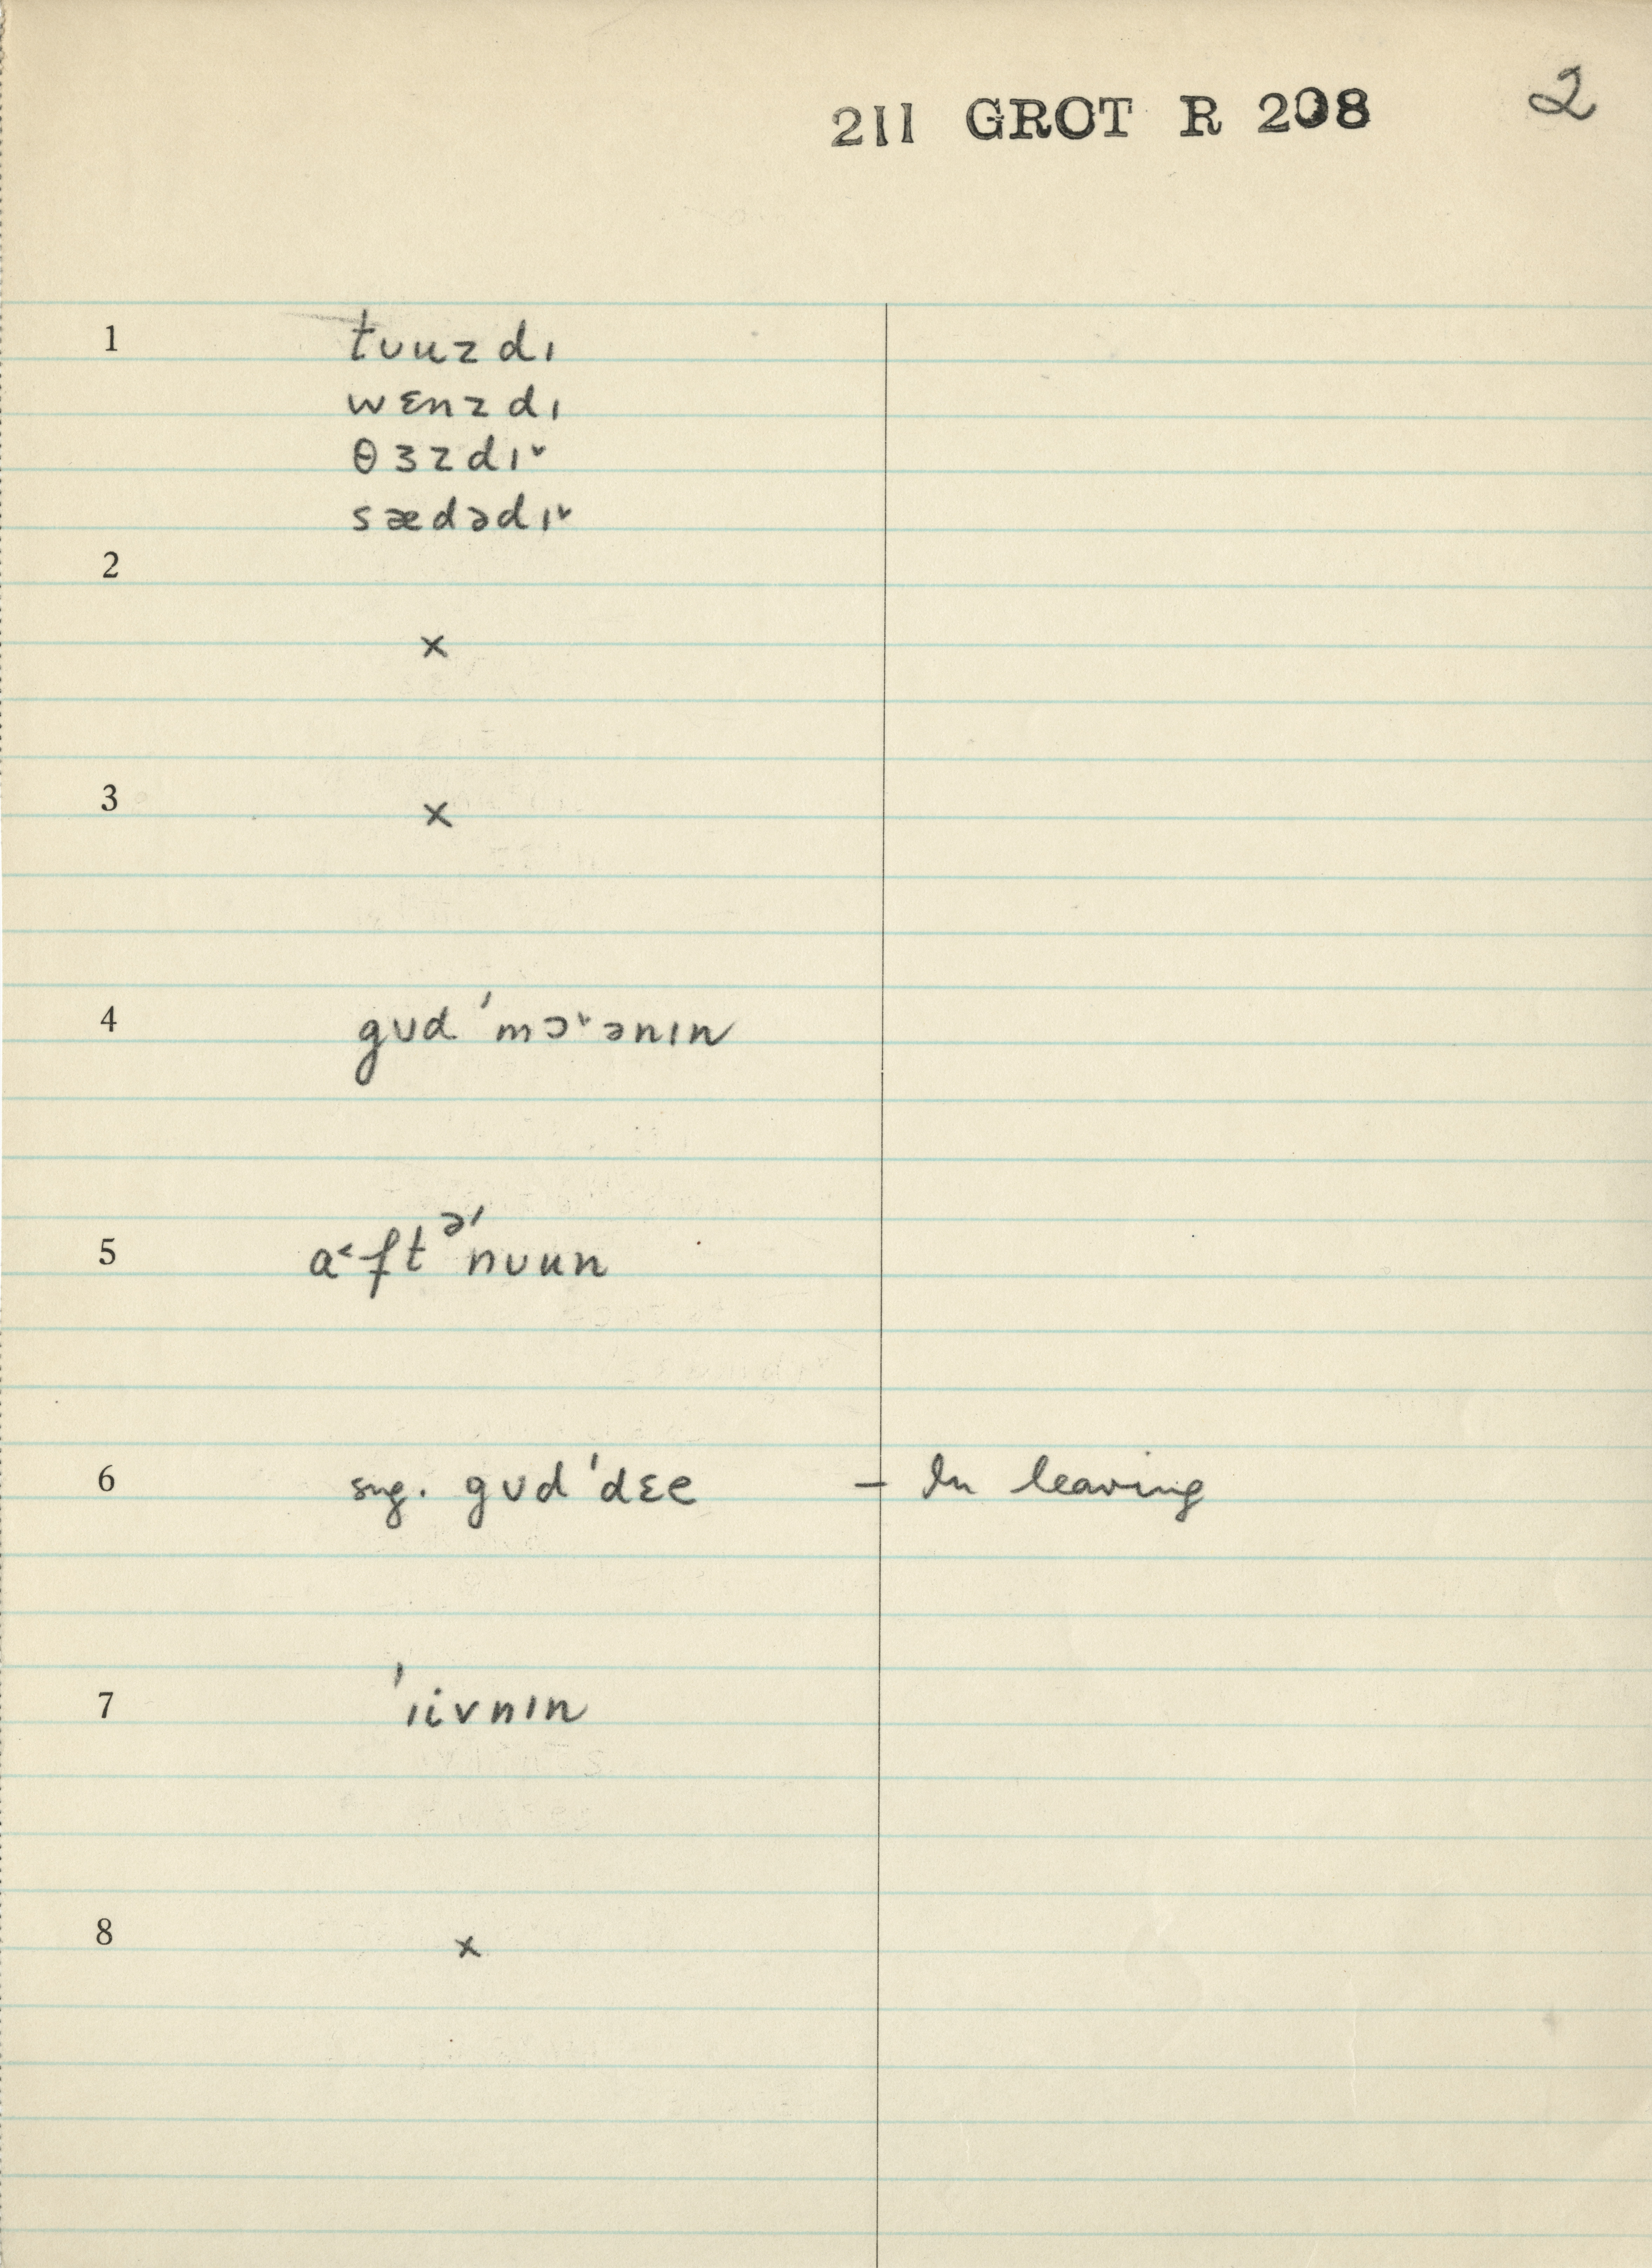 211 GROT R 208 2
1 tᴜuzdɪ
wɛnzdɪ
θɜzdɪ˅
sædədɪ˅
2
×
3 ×
4 gᴜd ˈmɔ˅ənɪn
5 a˂ftᵊˈnᴜun
6 sug. gᴜdˈdɛe – In leaving
7 ˈɪivnɪn
8 ×